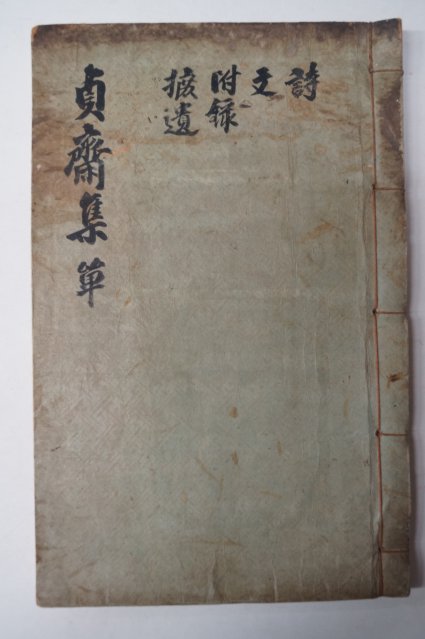 詩
文
附録
摭遺
貞齋集 單